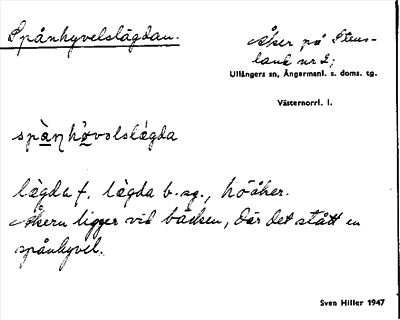 Spånhyvelslägdan.
Åker på Stens-
land nr 2;
Ullångers sn, Ångermanl. s. doms. tg.
Västernorrl. l.
lägda f. lägda b. sg., höåker.
Åkern ligger vid bäcken, där det stått en
spånhyvel.
Sven Hiller 1947